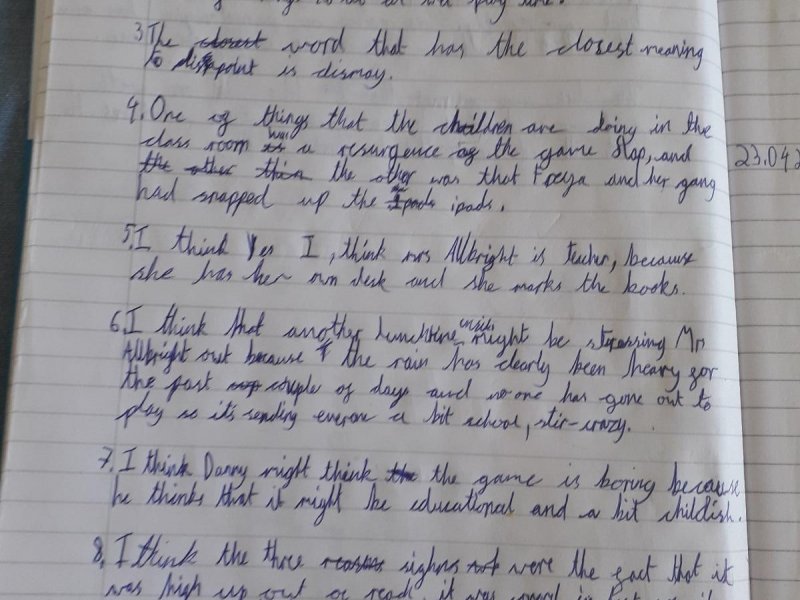 play
3. The closest word that has the closest meaning
to disapoint is dismay.
4. One of things that the children are doing in the
class room was a resurgence of the game Slap, and
the other was that Freya and her gang
had snapped up the ipads.
5. I think Yes I, think mrs Allbright is teacher, because
she has her own desk and she marks the books.
6. I think that another lunchtime inside might be stressing Mr
Allbright out because the rain has clearly been heavy for
the past couple of days and no one has gone out to
play so it's sending everone a bit school, stir-crazy.
7. I think Danny might think the game is boring because
he thinks that it might be educational and a bit childish.
23.04
8. I think the three reasons sighns were the fact that it
was high up out of